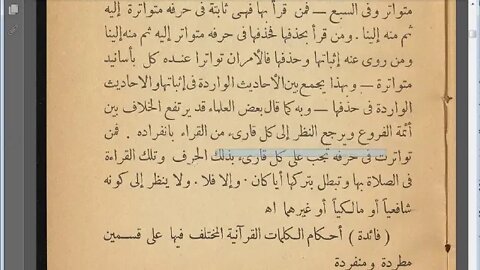 متواتر وفى السبع — فمن قرأ بها فهى ثابتة فى حرفه متواترة إليه
ثم منه إلينا . ومن قرأ بحذفها فحذفها فى حرفه متواتر إليه ثم منه إلينا
ومن روى عنه إثباتها وحذفها فالأمران تواترا عنده كل بأسانيد
متواترة — وبهذا يجمع بين الأحاديث الواردة فى إثباتها والأحاديث
الواردة فى حذفها — وبه كما قال بعض العلماء قد يرتفع الخلاف بين
أئمة الفروع ويرجع النظر إلى كل قارىء من القراء بانفراده . فمن
تواترت فى حرفه تجب على كل قارىء بذلك الحرف وتلك القراءة
فى الصلاة بها وتبطل بتركها أيا كان . وإلا فلا . ولا ينظر إلى كونه
شافعياً أو مالكياً أو غيرهما اه
( فائدة ) أحكام الكلمات القرآنية المختلف فيها على قسمين
مطردة ومنفردة